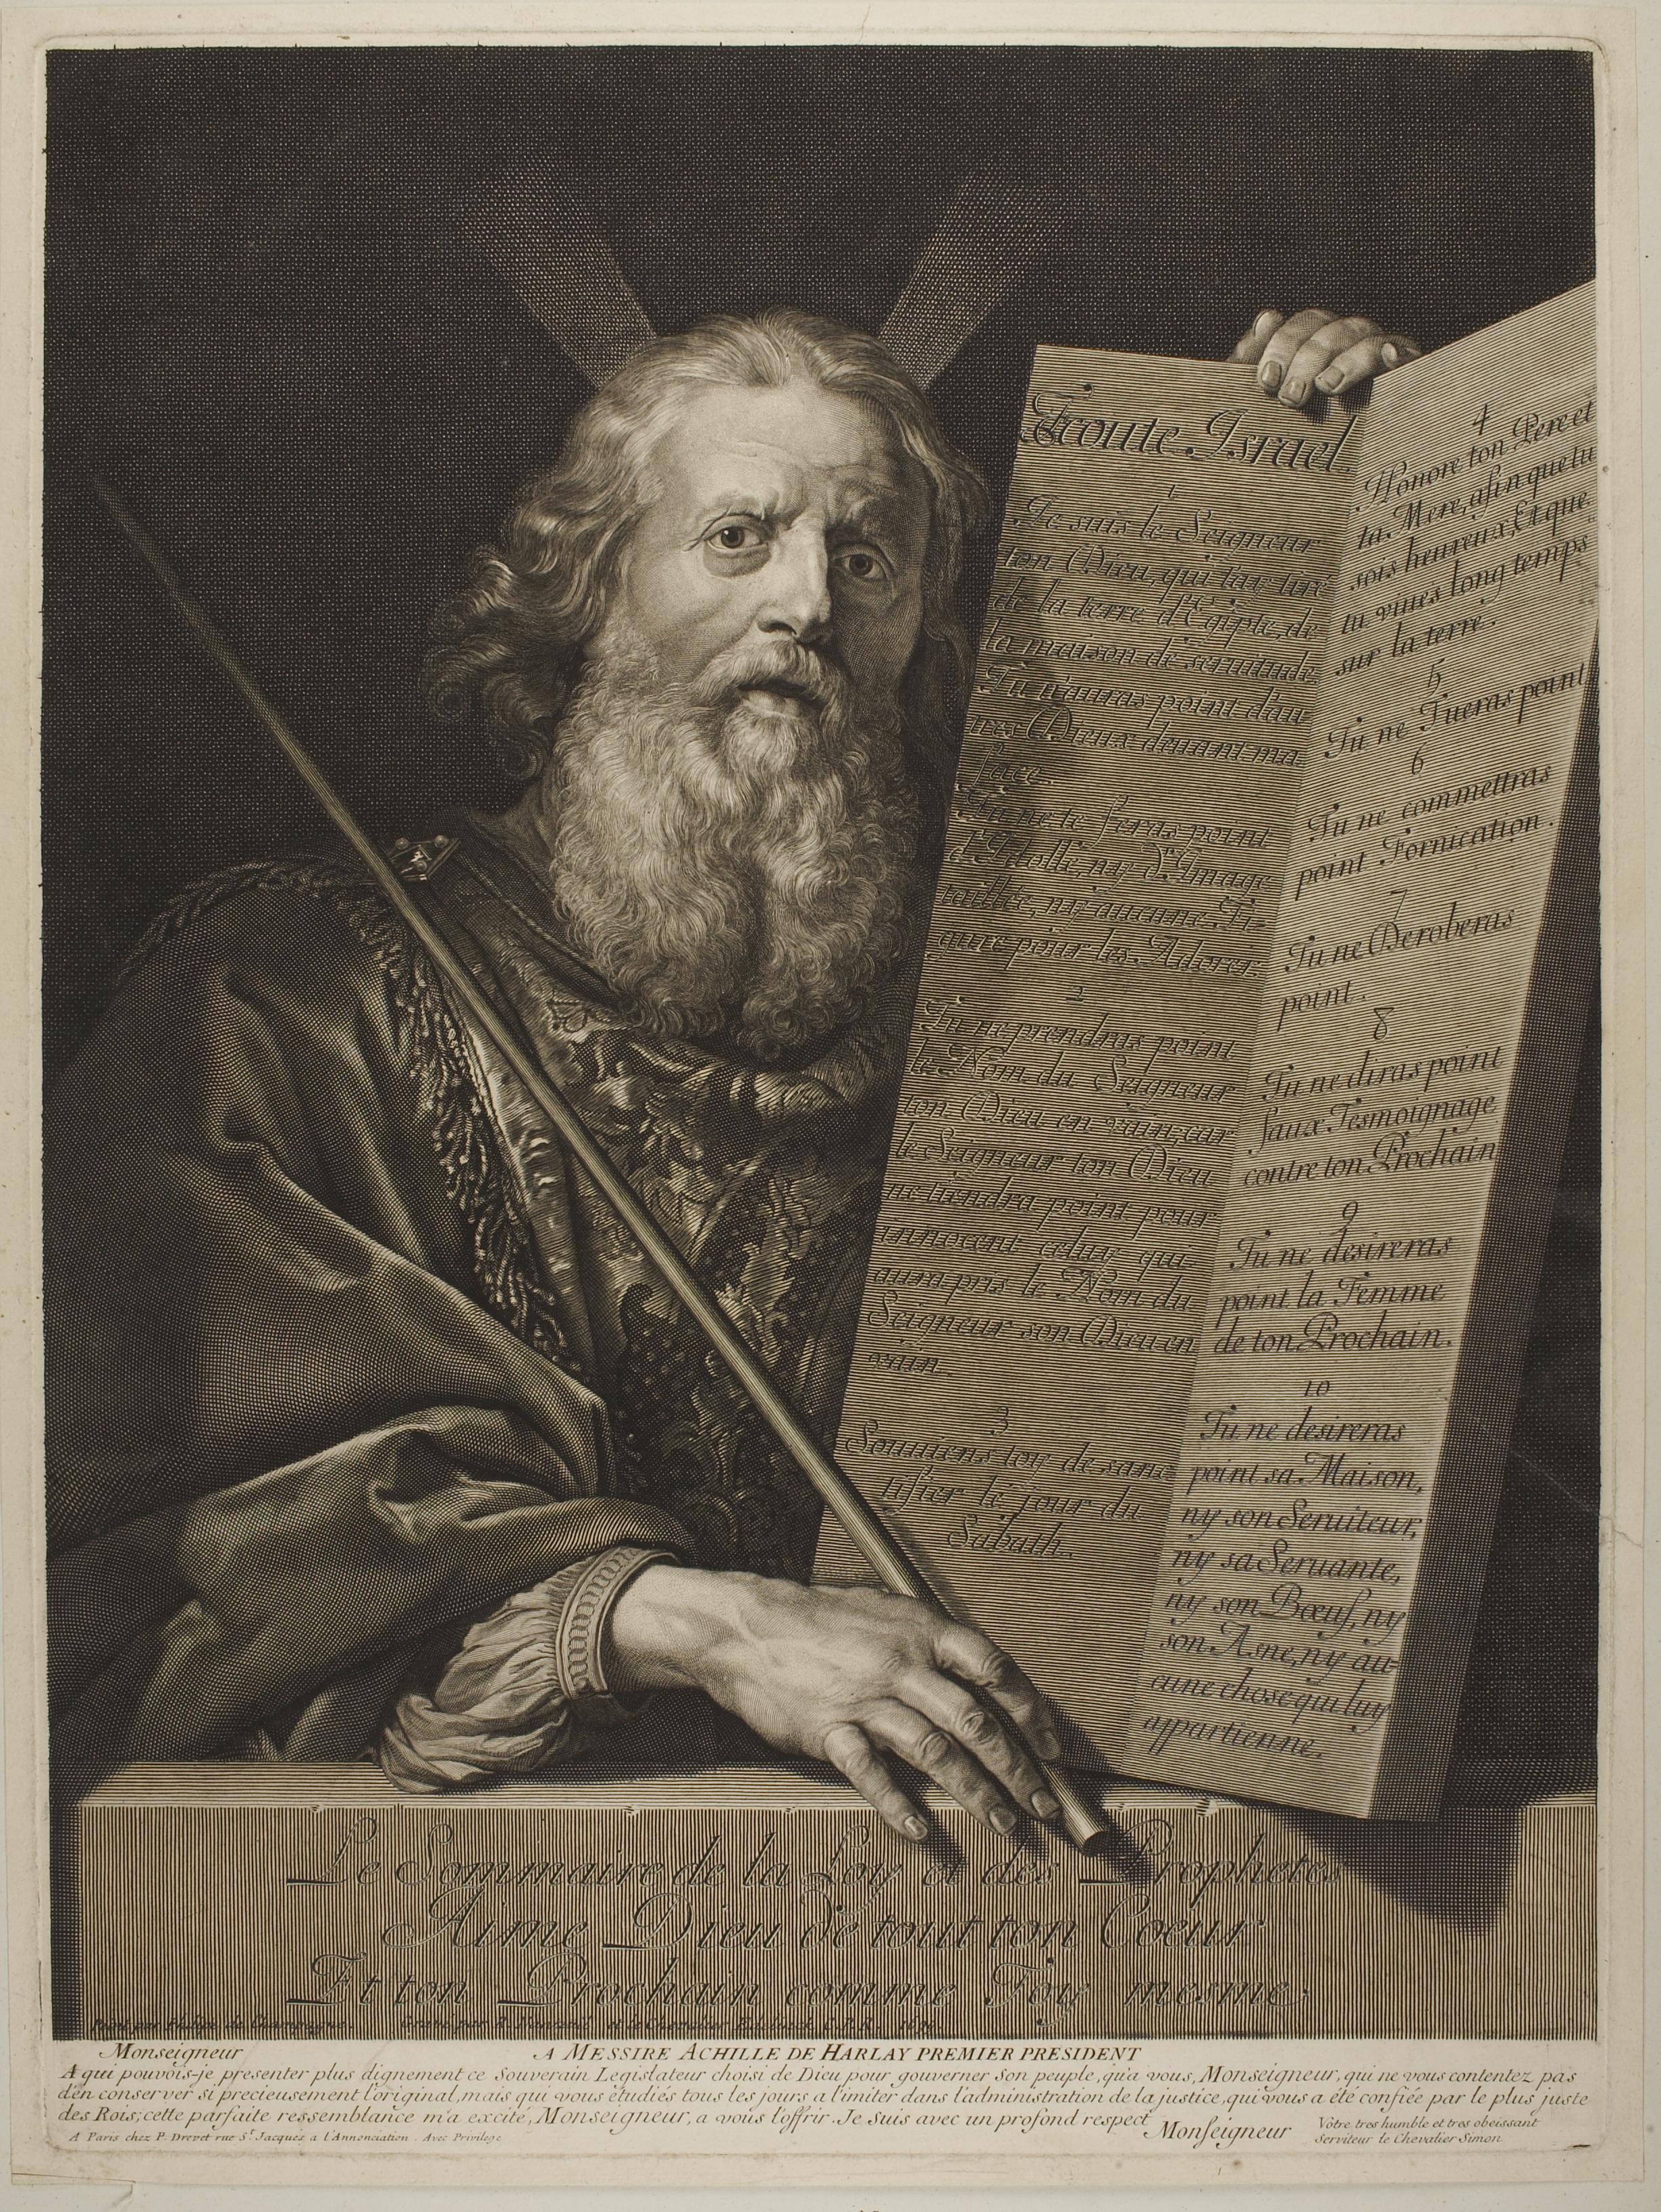 Écoute Israel.
1
Je suis le Seigneur
ton Dieu, qui t'ay tiré
de la terre d'Egipte, de
la maison de seruitude.
Tu n'auras point d'au-
tres Dieux deuant ma
face.
Tu ne te feras point
d'Idolle, ny d'Image
taillée, ny aucune Fi-
gure pour les Adorer.
2
Tu ne prendras point
le Nom du Seigneur
ton Dieu en vain, car
le Seigneur ton Dieu
ne tiendra point pour
innocent celuy qui
aura pris le Nom du
Seigneur son Dieu en
vain.
3
Souuiens toy de sanc
tifier le jour du
Sabath.
4
Honore ton Pere et
ta Mere, afin que tu
sois heureux, Et que
tu viues long temps
sur la terre.
5
Tu ne Tueras point
6
Tu ne commettras
point Fornication.
7
Tu ne Deroberas
point.
8
Tu ne diras point
faux Tesmoignage
contre ton Prochain
9
Tu ne desireras
point la Femme
de ton Prochain.
10
Tu ne desireras
point sa Maison,
ny son Seruiteur,
ny sa Seruante,
ny son Bœuf, ny
son Asne, ny au-
cune chose qui luy
appartienne.
Le Sommaire de la Loy et des Prophetes
Aime Dieu de tout ton Coeur
Et ton Prochain comme Toy mesme.
Peint par Philipe de Champagne. Gravé par R. Nanteuil et le Chevalier Edelinck C.P.R.
Monseigneur A MESSIRE ACHILLE DE HARLAY PREMIER PRESIDENT
A qui pouvois-je presenter plus dignement ce Souverain Legislateur choisi de Dieu pour gouverner son peuple, qu'a vous, Monseigneur, qui ne vous contentez pas
d'en conserver si precieusement l'original, mais qui vous étudiés tous les jours a l'imiter dans l'administration de la justice, qui vous a été confiée par le plus juste
des Rois; cette parfaite ressemblance m'a excité, Monseigneur, a vous l'offrir. Je suis avec un profond respect Monseigneur Vôtre tres humble et tres obeissant
Serviteur le Chevalier Simon.
A Paris chez P. Drevet rue St. Jacques a l'Annonciation. Avec Privilege